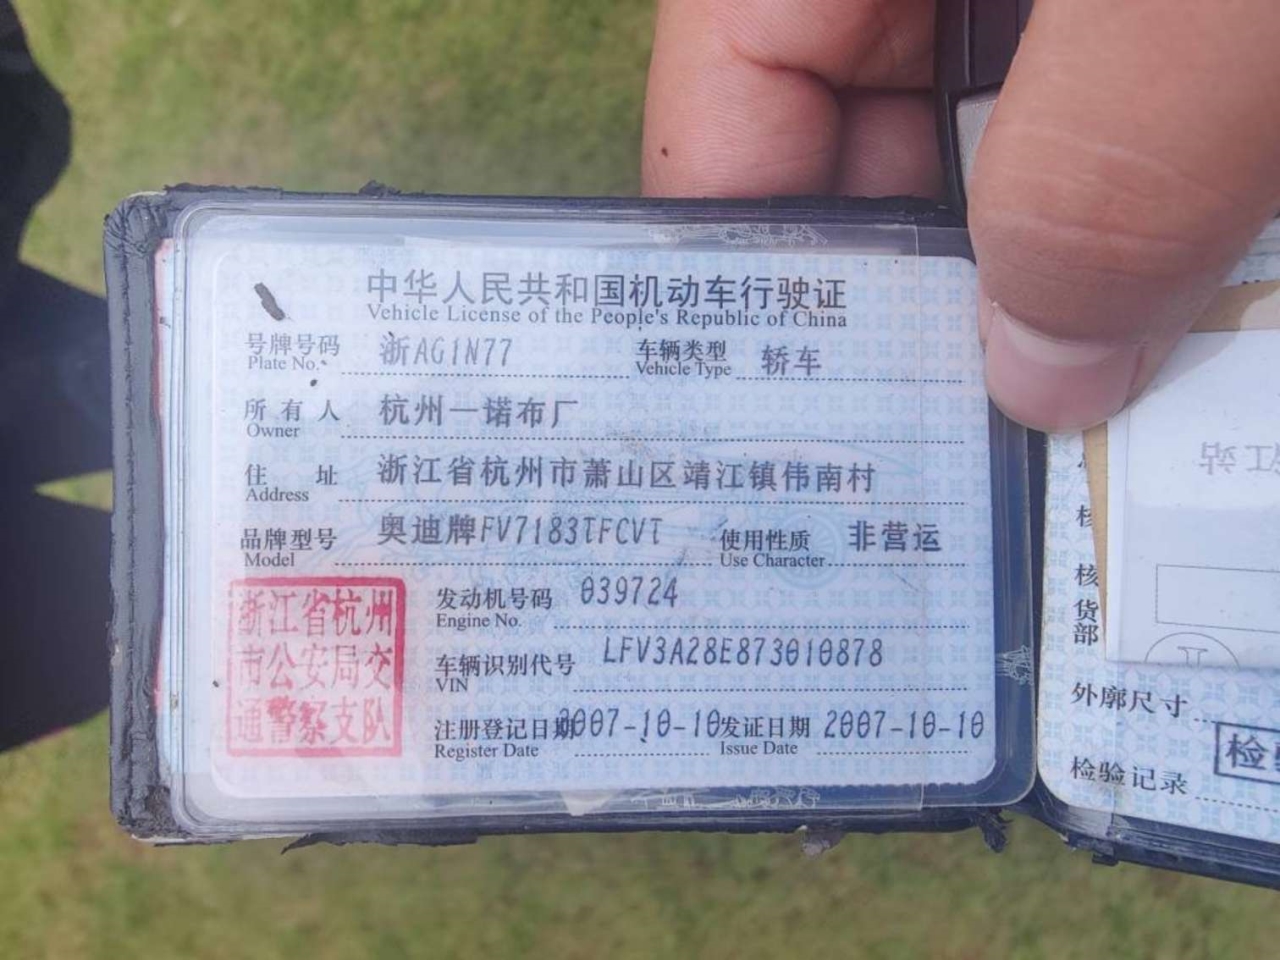 中华人民共和国机动车行驶证
Vehicle License of the People's Republic of China
号牌号码 浙AG1N77 车辆类型 轿车
Plate No. Vehicle Type
所有人 杭州一诺布厂
Owner
住址 浙江省杭州市萧山区靖江镇伟南村
Address
品牌型号 奥迪牌FV7183TFCVT 使用性质 非营运
Model Use Character
发动机号码 039724
Engine No.
车辆识别代号 LFV3A28E873010878
VIN
注册登记日期 2007-10-10 发证日期 2007-10-10
Register Date Issue Date
浙江省杭州
市公安局交
通警察支队
核
核
货
部
外廓尺寸
检验记录
检
江站